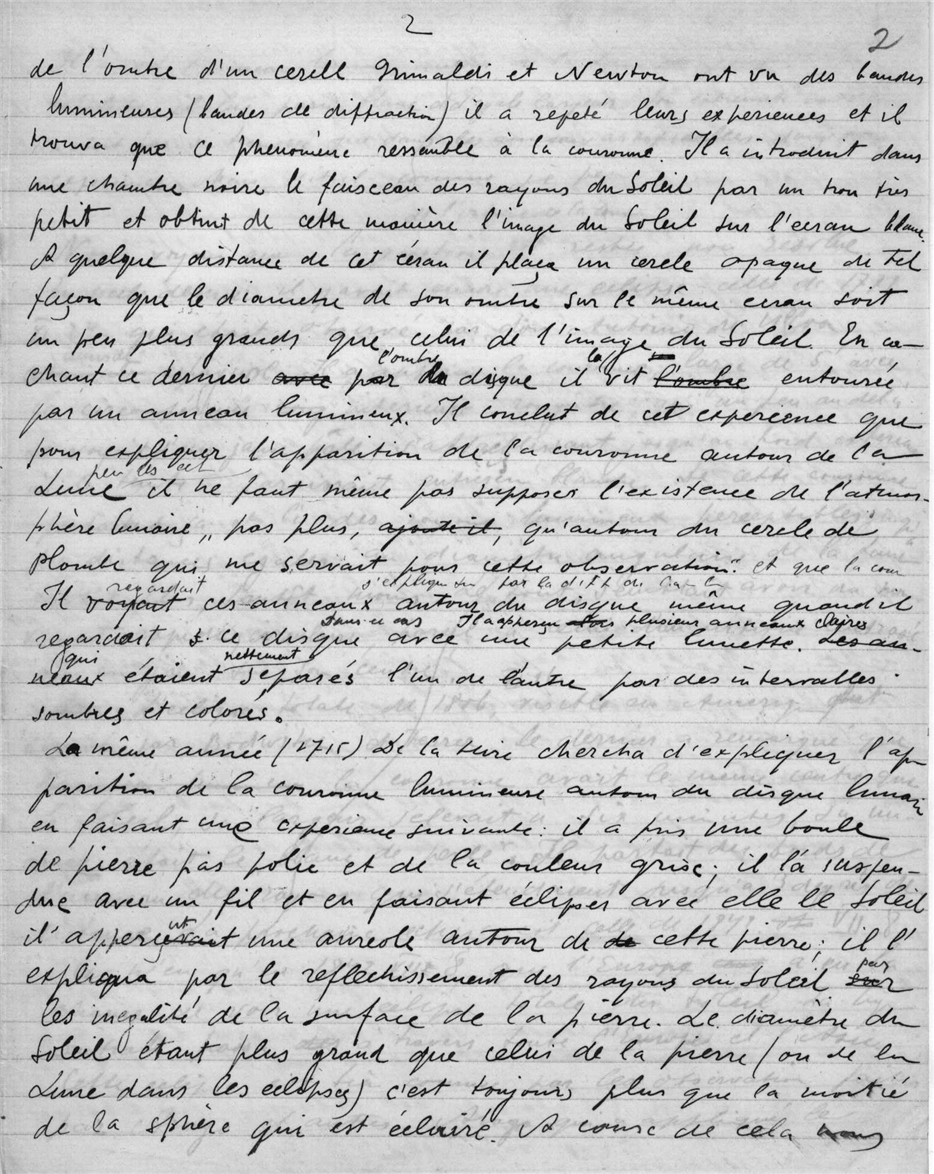 2
2
de l'ombre d'un cercll Grimaldi et Newton ont vu des bandes
lumineuses (bandes de diffraction) il a repeté leurs experiences et il
trouva que ce phenomène ressemble à la couronne. Il a introduit dans
une chambre noire le faisceau des rayons du Soleil par un trou très
petit et obtint de cette manière l'image du Soleil sur l'ecran blanc.
A quelque distance de cet écran il plaça un cercle opaque de tel
façon que le diametre de son ombre sur le même ecran soit
un peu plus grands que celui de l'image du Soleil. En ca-
l'ombre la
chant ce dernier avec par du disque il vit l'ombre entourée
par un anneau lumineux. Il conclut de cet experience que
pour expliquer l'apparition de la couronne autour de la
Lune il ne faut même pas supposer l'existence de l'atmos-
phère lunaire „ pas plus, ajoute il, qu'autour du cercle de
plombe qui me servait pour cette observation". et que la cour
regardait s'explique par la diff. de
Il voyait ces anneaux autour du disque même quand il
Il apperçu plusieur anneaux claires
regardait ce disque avec une petite lunette. Les an-
qui nettement
neaux étaient séparés l'un de l'autre par des intervalles
sombres et colorés.
La même année (1715) De la Hire chercha d'expliquer l'ap
parition de la couronne lumineuse autour du disque lunair
en faisant une experience suivante: il a pris une boule
de pierre pas polie et de la couleur grise; il l'a suspen-
due avec un fil et en faisant écliper avec elle le Soleil
ut
il appercevait une aureole autour de de cette pierre: il l'
par
expliqua par le reflechissement des rayons du Soleil sur
les inegalité de la surface de la pierre. Le diamètre du
Soleil étant plus grand que celui de la pierre (ou de la
Lune dans les eclipses) c'est toujours plus que la moitié
de la sphère qui est éclairé. A cause de cela nous